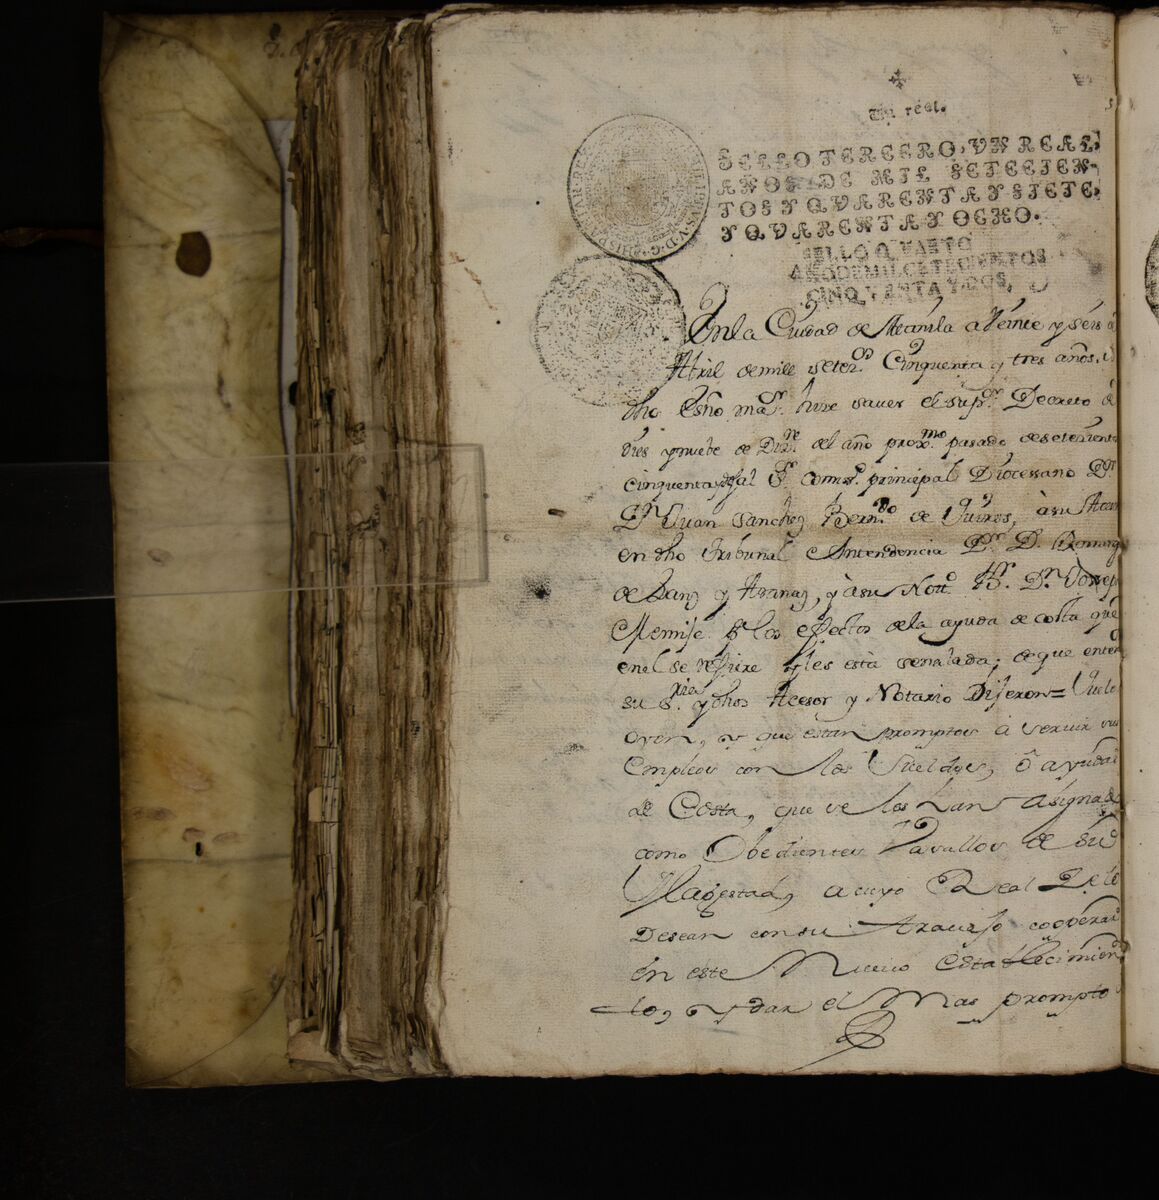 Un real.
SELLO TERCERO, VN REAL,
AÑOS DE MIL SETECIEN-
TOS Y QVARENTA Y SIETE,
Y QVARENTA Y OCHO.
SELLO QVARTO
AÑO DE MIL SETECIENTOS
CINQVENTA Y DOS,
En la Ciudad de Manila a Veinte y seis
Abril de mill setezos Cinquenta y tres años,
dho Essño mar hize saver el supor Decreto
dies y nuebe de Dizre del año proxmo pasado de setecientos
cinquenta y dos al Sr comso principal Diocessano Dn
Dn Juan Sanchez Berndo de Quiros, à su
en dho tribunal Dr D.
de Sanz y Aranaz, y à su Nott Br Dn
los efectos de la ayuda de costa que
en el se refiere y les està señalada; de que
su y dhos Acesor y Notario Dijeron=
oyen, y que estan promptos à servir
Empleos con los Sueldos, ô ayudas
de Costa, que se los han asignado
como Obedientes Vasallos de Su
Magestad, a cuyo Real
Desean con su travajo cooperar
en este Nuevo Establecimien
to, y dar el Mas prompto